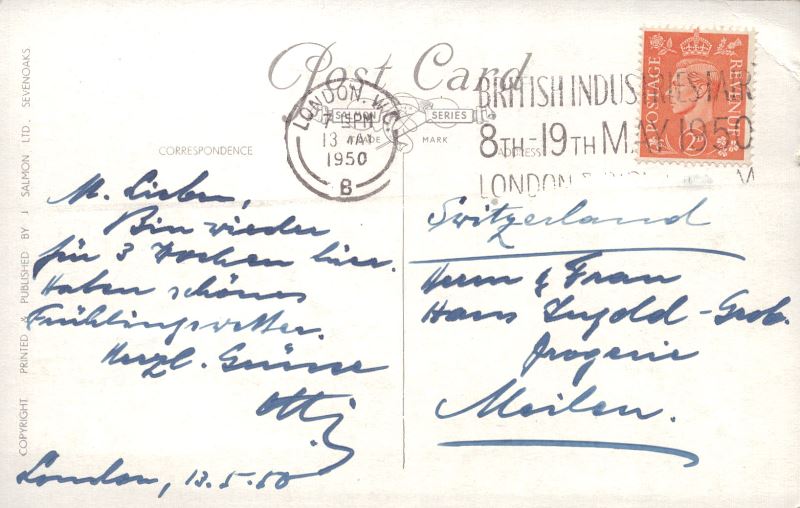 COPYRIGHT. PRINTED & PUBLISHED BY J SALMON LTD. SEVENOAKS
Post Card
SALMON SERIES
TRADE MARK
CORRESPONDENCE
ADDRESS
LONDON. W.C.
7 PM
13 MAY
1950
B
BRITISH INDUSTRIES FAIR
8TH-19TH MAY 1950
LONDON
POSTAGE REVENUE
2D
M. Lieben,
Bin wieder
für 3 Wochen hier.
Haben schönes
Frühlingswetter.
Herzl. Grüsse
London, 13.5.50
Switzerland
Herrn & Frau
Hans Ingold-Grob.
Drogerie
Meilen.